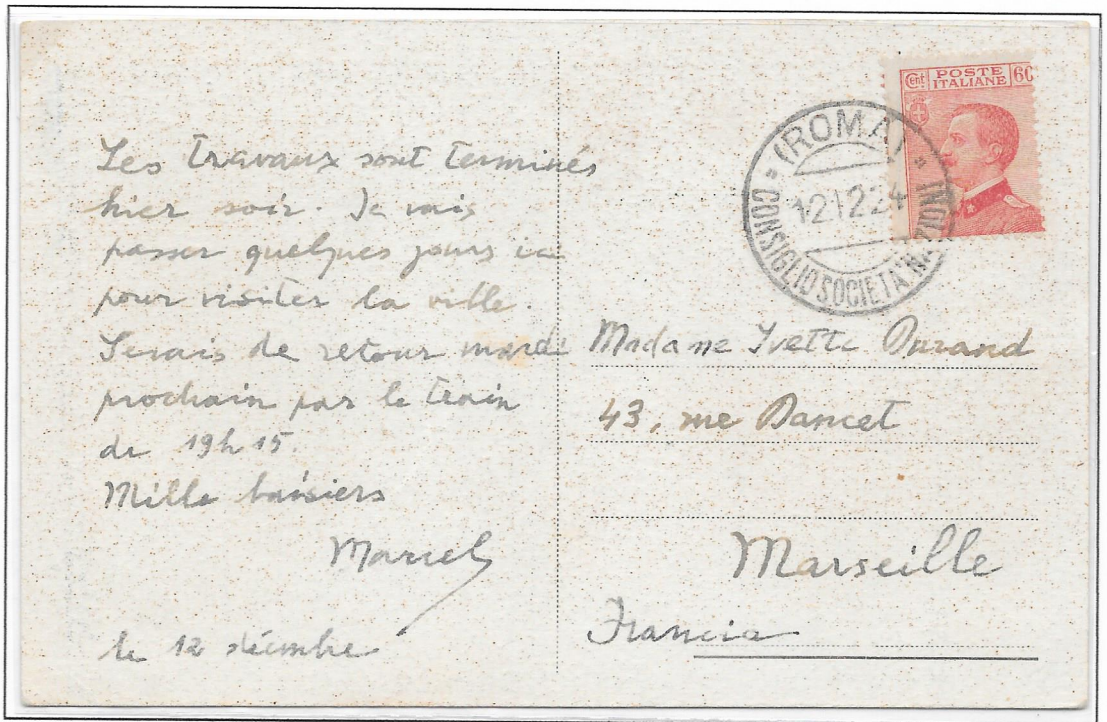 Les travaux sont terminés
hier soir. Je vais
passer quelques jours ici
pour visiter la ville.
Serais de retour mardi
prochain par le train
de 19h15.
Mille baisiers
Marcel
le 12 décembre
Cent. POSTE ITALIANE 60
(ROMA)
12.12.24
CONSIGLIO SOCIETA' NAZIONI
Madame Yvette Durand
43, rue Dancet
Marseille
Francia